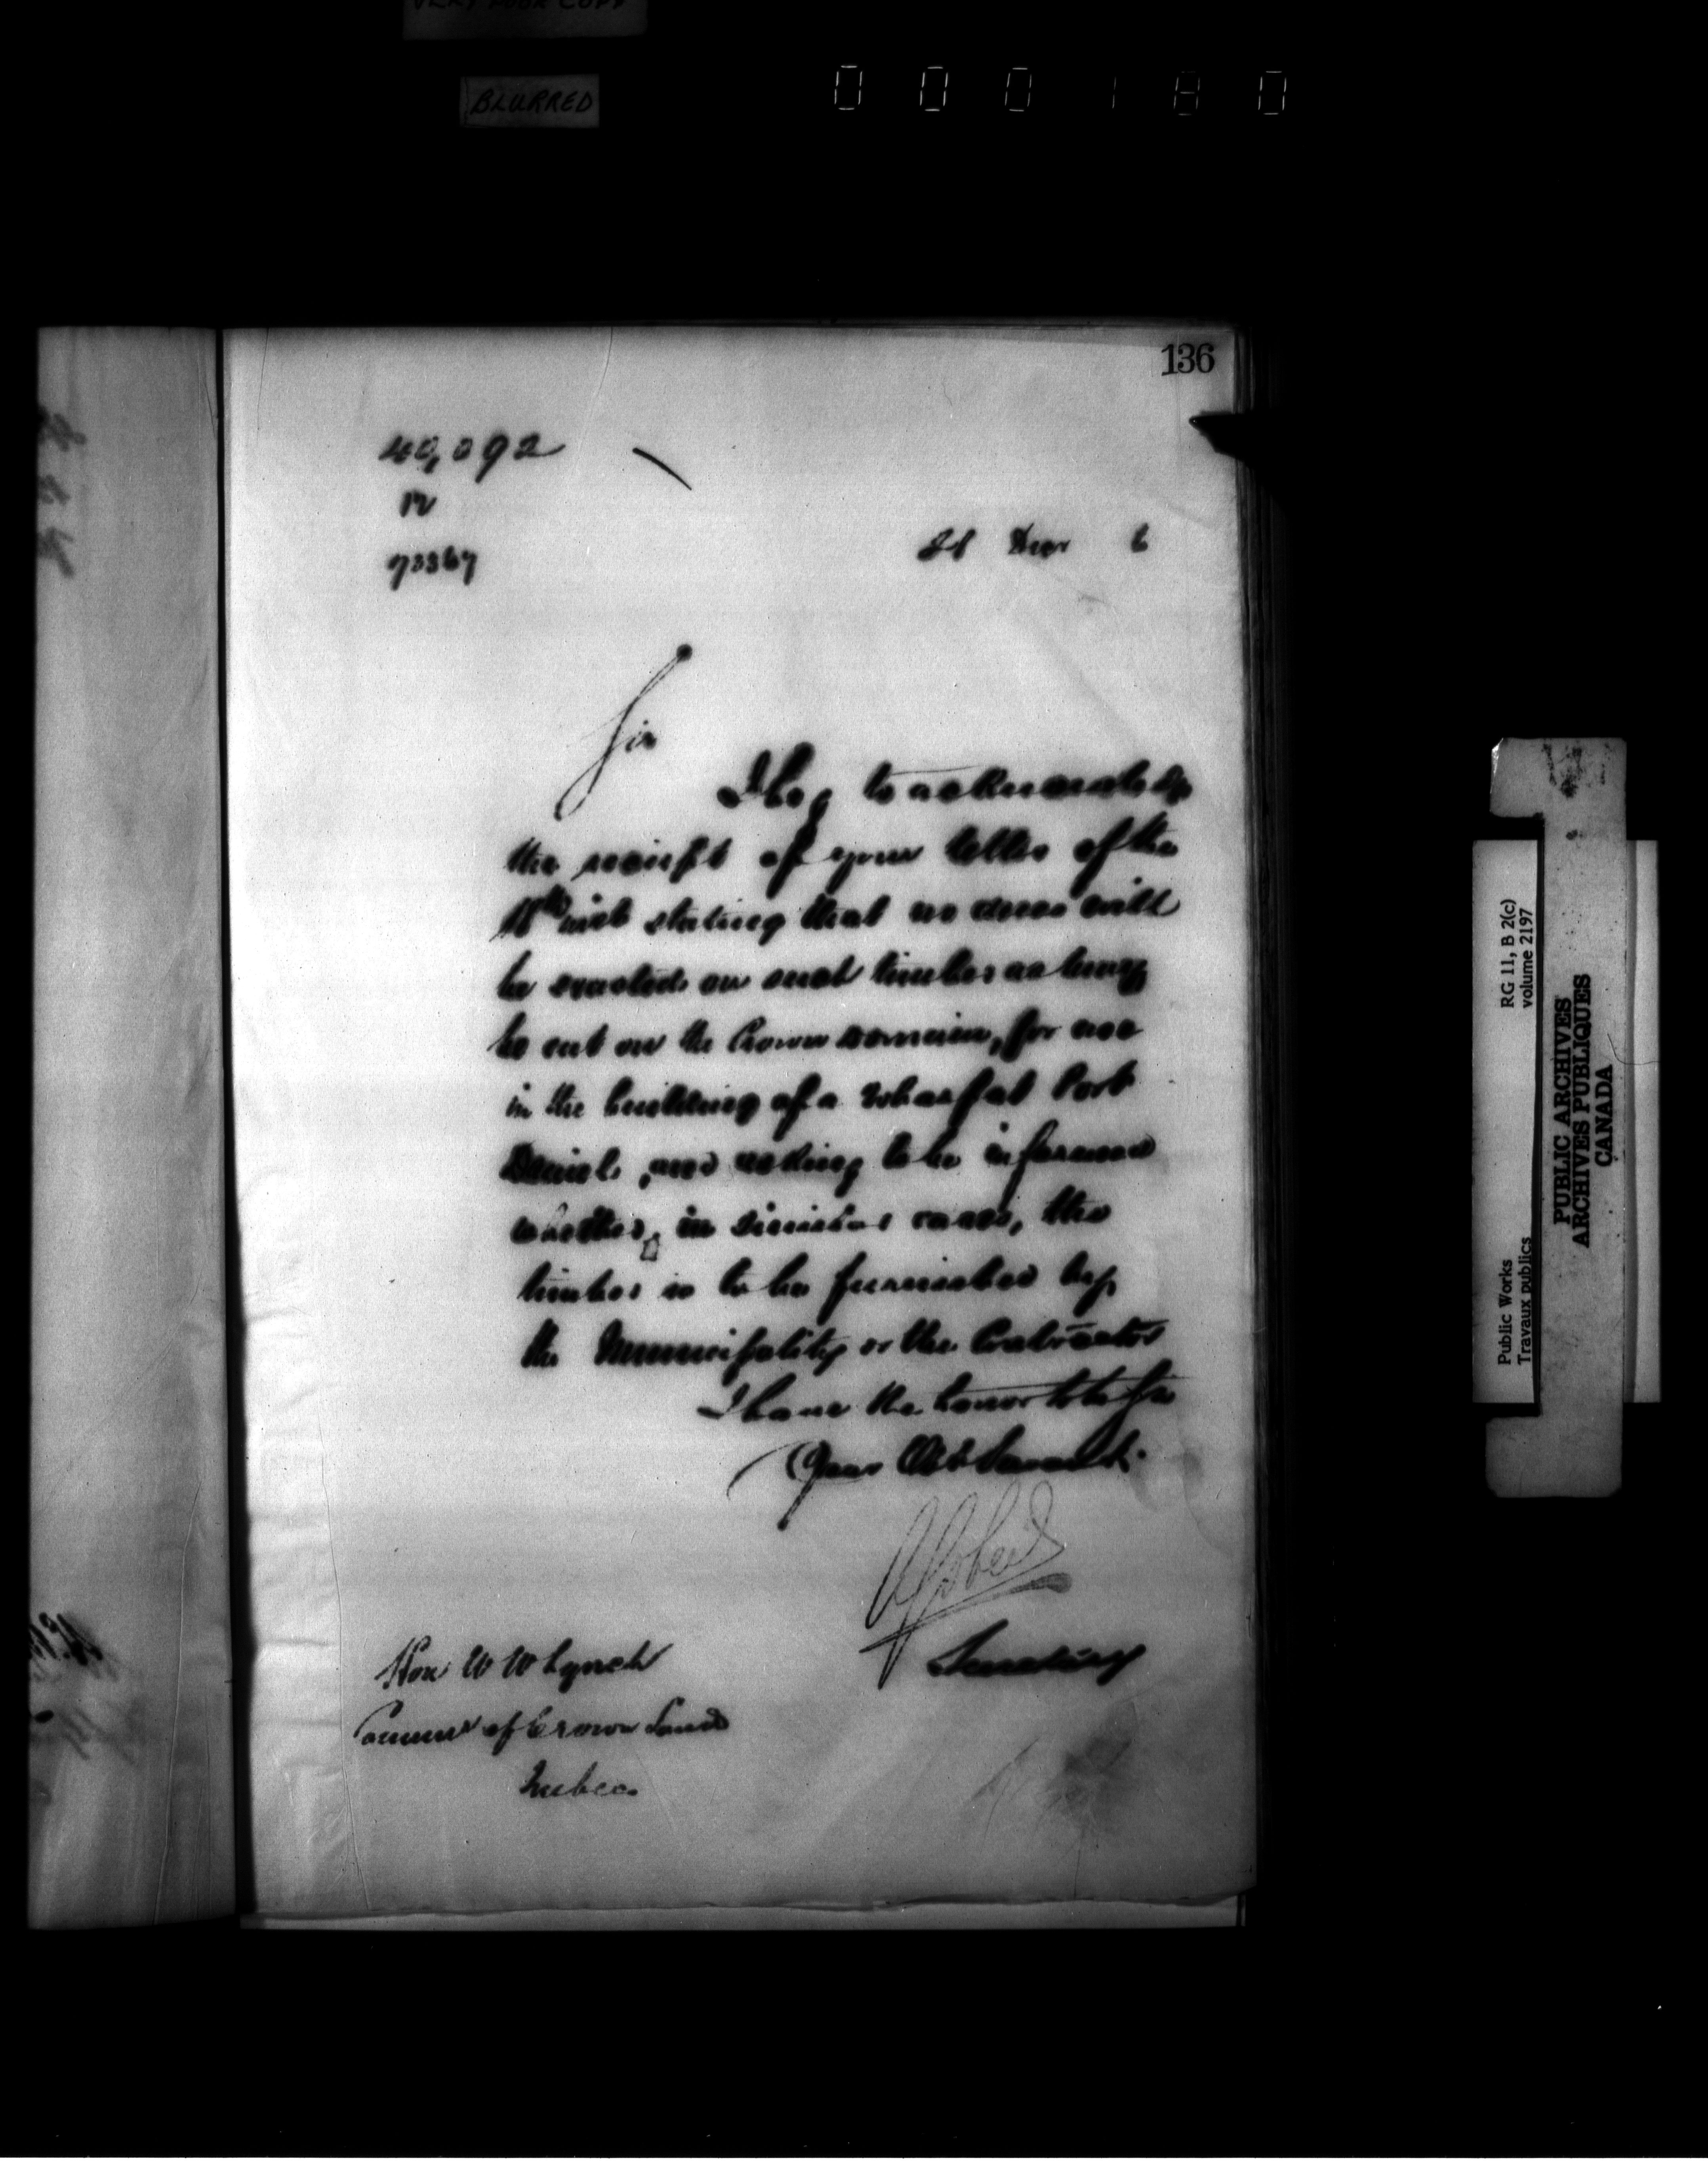 VERY POOR COPY
BLURRED
000180
136
40,092
73367
21 Decr 6
Sir
I beg to acknowledge
the receipt of your letter of the
inst stating that no dues will
be exacted on such timber as may
be cut on the Crown domain, for use
in the building of a wharf at Port
Daniel, and asking to be informed
whether, in similar cases, the
timber is to be furnished by
the Municipality or the Contractor
I have the honor to be Sir
Your Obt Servant.
AGobeil
Secretary
Hon W W Lynch
Commr of Crown Lands
Quebec
Public Works RG 11, B 2(c)
Travaux publics volume 2197
PUBLIC ARCHIVES
ARCHIVES PUBLIQUES
CANADA